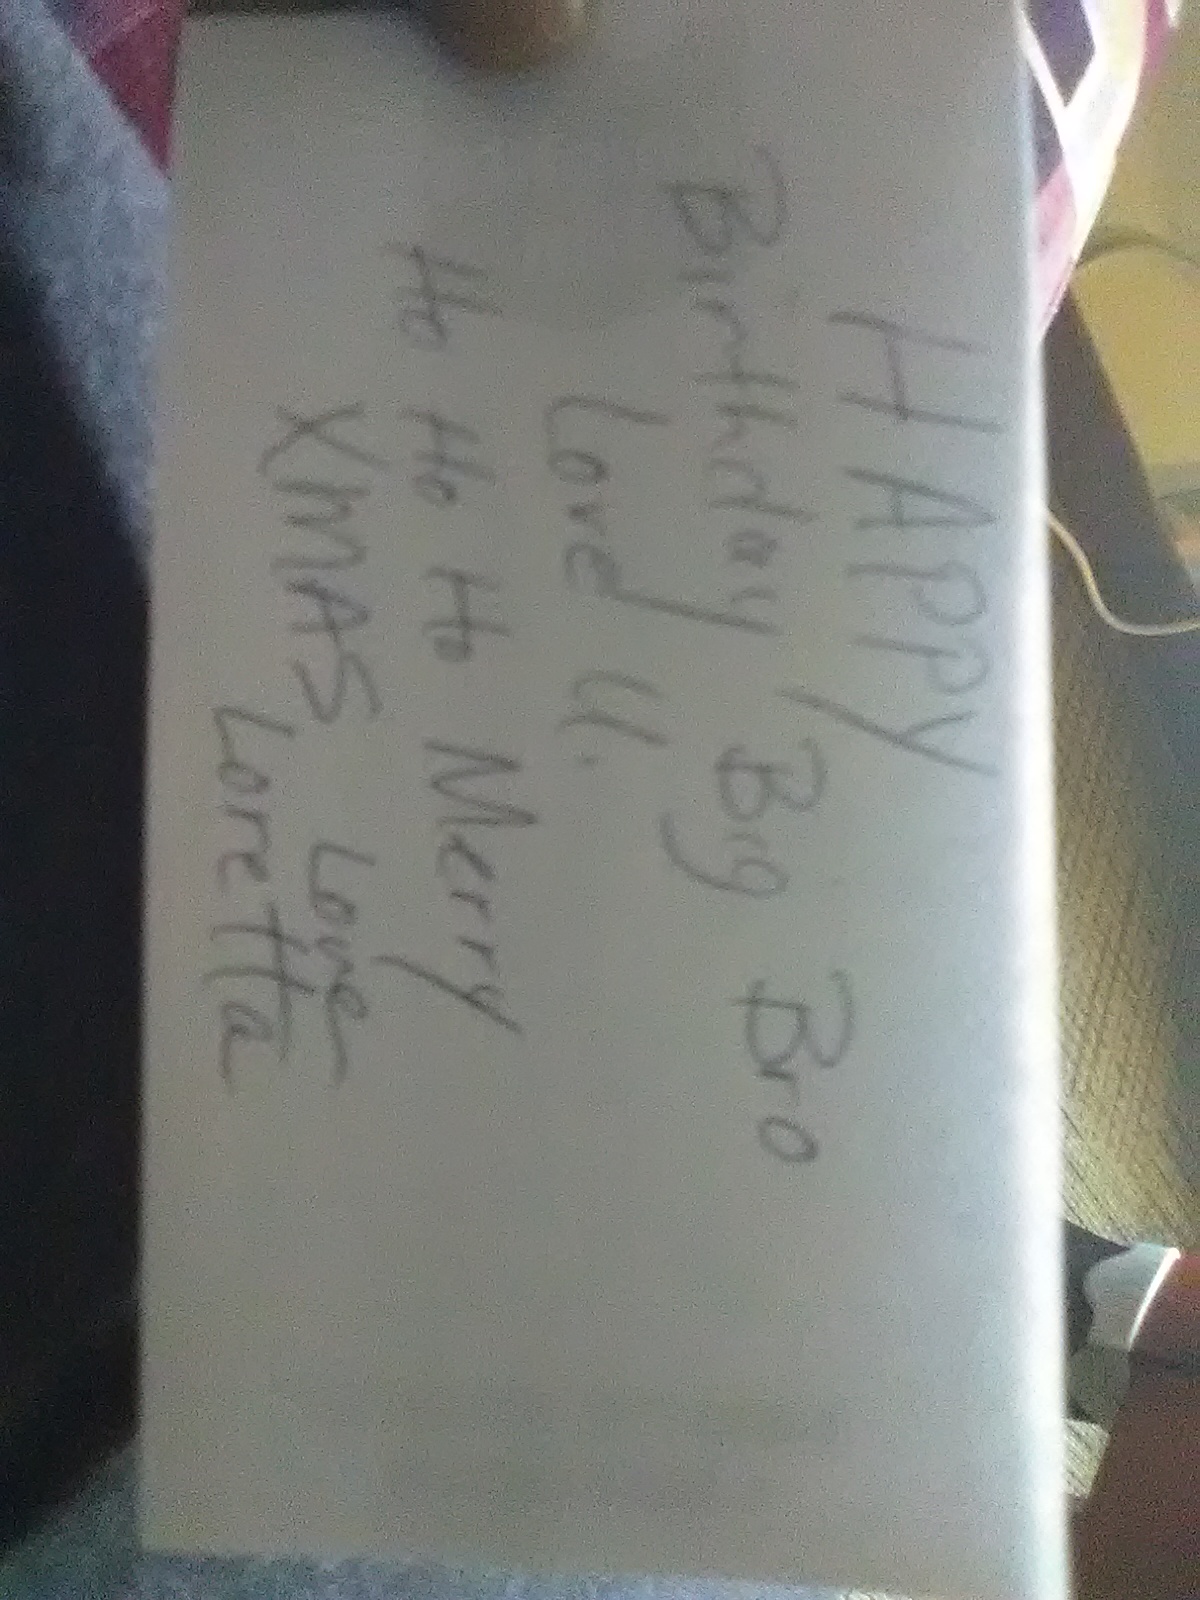 HAPPY
Birthday Big Bro
Love U.
Ho Ho Ho Merry
XMAS Love
Loretta